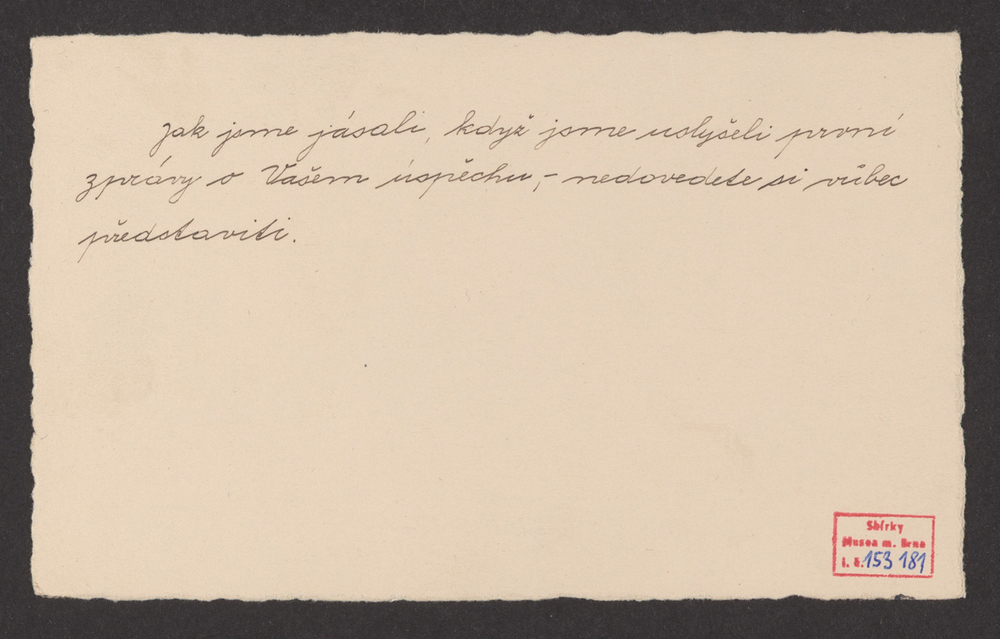 Jak jsme jásali, když jsme uslyšeli první
zprávy o Vašem úspěchu, – nedovedete si vůbec
představiti.
Sbírky
Musea m. Brna
i. č. 153 181